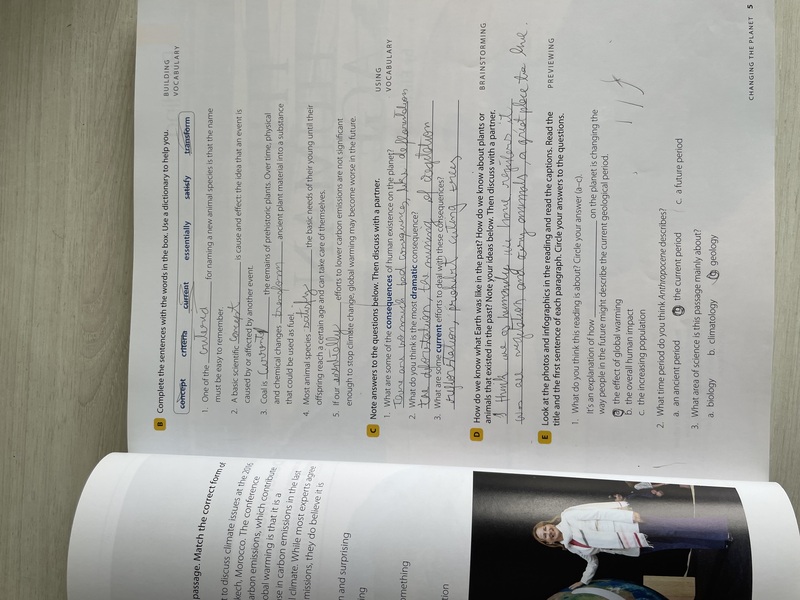 passage. Match the correct form of
t to discuss climate issues at the 2016
kech, Morocco. The conference
arbon emissions, which contribute
obal warming is that it is a
se in carbon emissions in the last
l climate. While most experts agree
missions, they do believe it is
n and surprising
ing
omething
tion
B Complete the sentences with the words in the box. Use a dictionary to help you.
BUILDING
VOCABULARY
concept criteria current essentially satisfy transform
1. One of the critered for naming a new animal species is that the name
must be easy to remember.
2. A basic scientific concept is cause and effect: the idea that an event is
caused by or affected by another event.
3. Coal is current the remains of prehistoric plants. Over time, physical
and chemical changes transform ancient plant material into a substance
that could be used as fuel.
4. Most animal species satisfy the basic needs of their young until their
offspring reach a certain age and can take care of themselves.
5. If our essentially efforts to lower carbon emissions are not significant
enough to stop climate change, global warming may become worse in the future.
C Note answers to the questions below. Then discuss with a partner.
USING
VOCABULARY
1. What are some of the consequences of human existence on the planet?
There are bad like
2. What do you think is the most dramatic consequence?
the the of
3. What are some current efforts to deal with these consequences?
prohibit trees
D How do we know what Earth was like in the past? How do we know about plants or
animals that existed in the past? Note your ideas below. Then discuss with a partner.
BRAINSTORMING
I think we as humanity we registers it
and animals, a great place to live.
E Look at the photos and infographics in the reading and read the captions. Read the
title and the first sentence of each paragraph. Circle your answers to the questions.
PREVIEWING
1. What do you think this reading is about? Circle your answer (a–c).
It's an explanation of how ____ on the planet is changing the
way people in the future might describe the current geological period.
a. the effect of global warming
b. the overall human impact
c. the increasing population
2. What time period do you think Anthropocene describes?
a. an ancient period b. the current period c. a future period
3. What area of science is this passage mainly about?
a. biology b. climatology c. geology
CHANGING THE PLANET 5